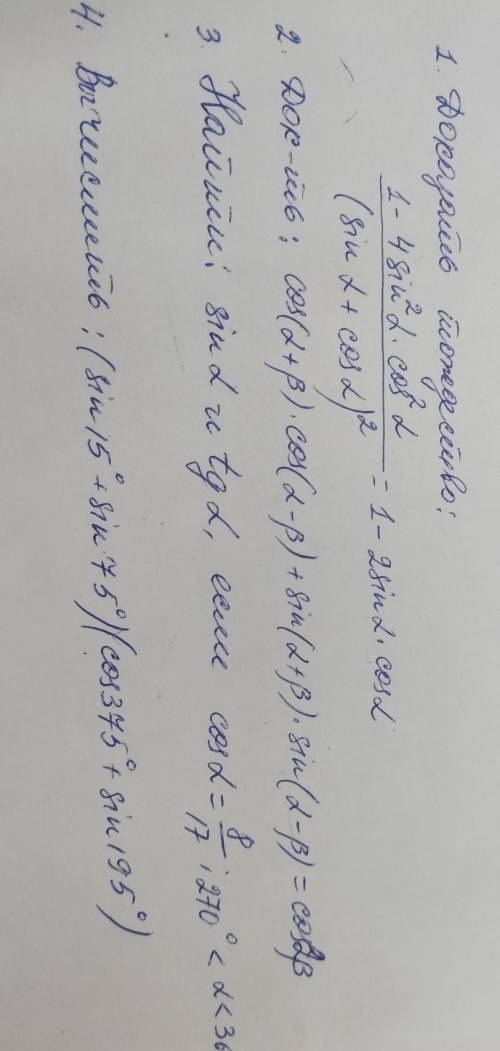 1. Доказать тождество:
1 - 4 sin²α · cos²α / (sin α + cos α)² = 1 - 2 sin α · cos α
2. Док-ть: cos(α+β) · cos(α-β) + sin(α+β) · sin(α-β) = cos2β
3. Найти: sin α и tg α, если cos α = 8/17; 270° < α < 36
4. Вычислить: (sin 15° + sin 75°)(cos 375° + sin 195°)